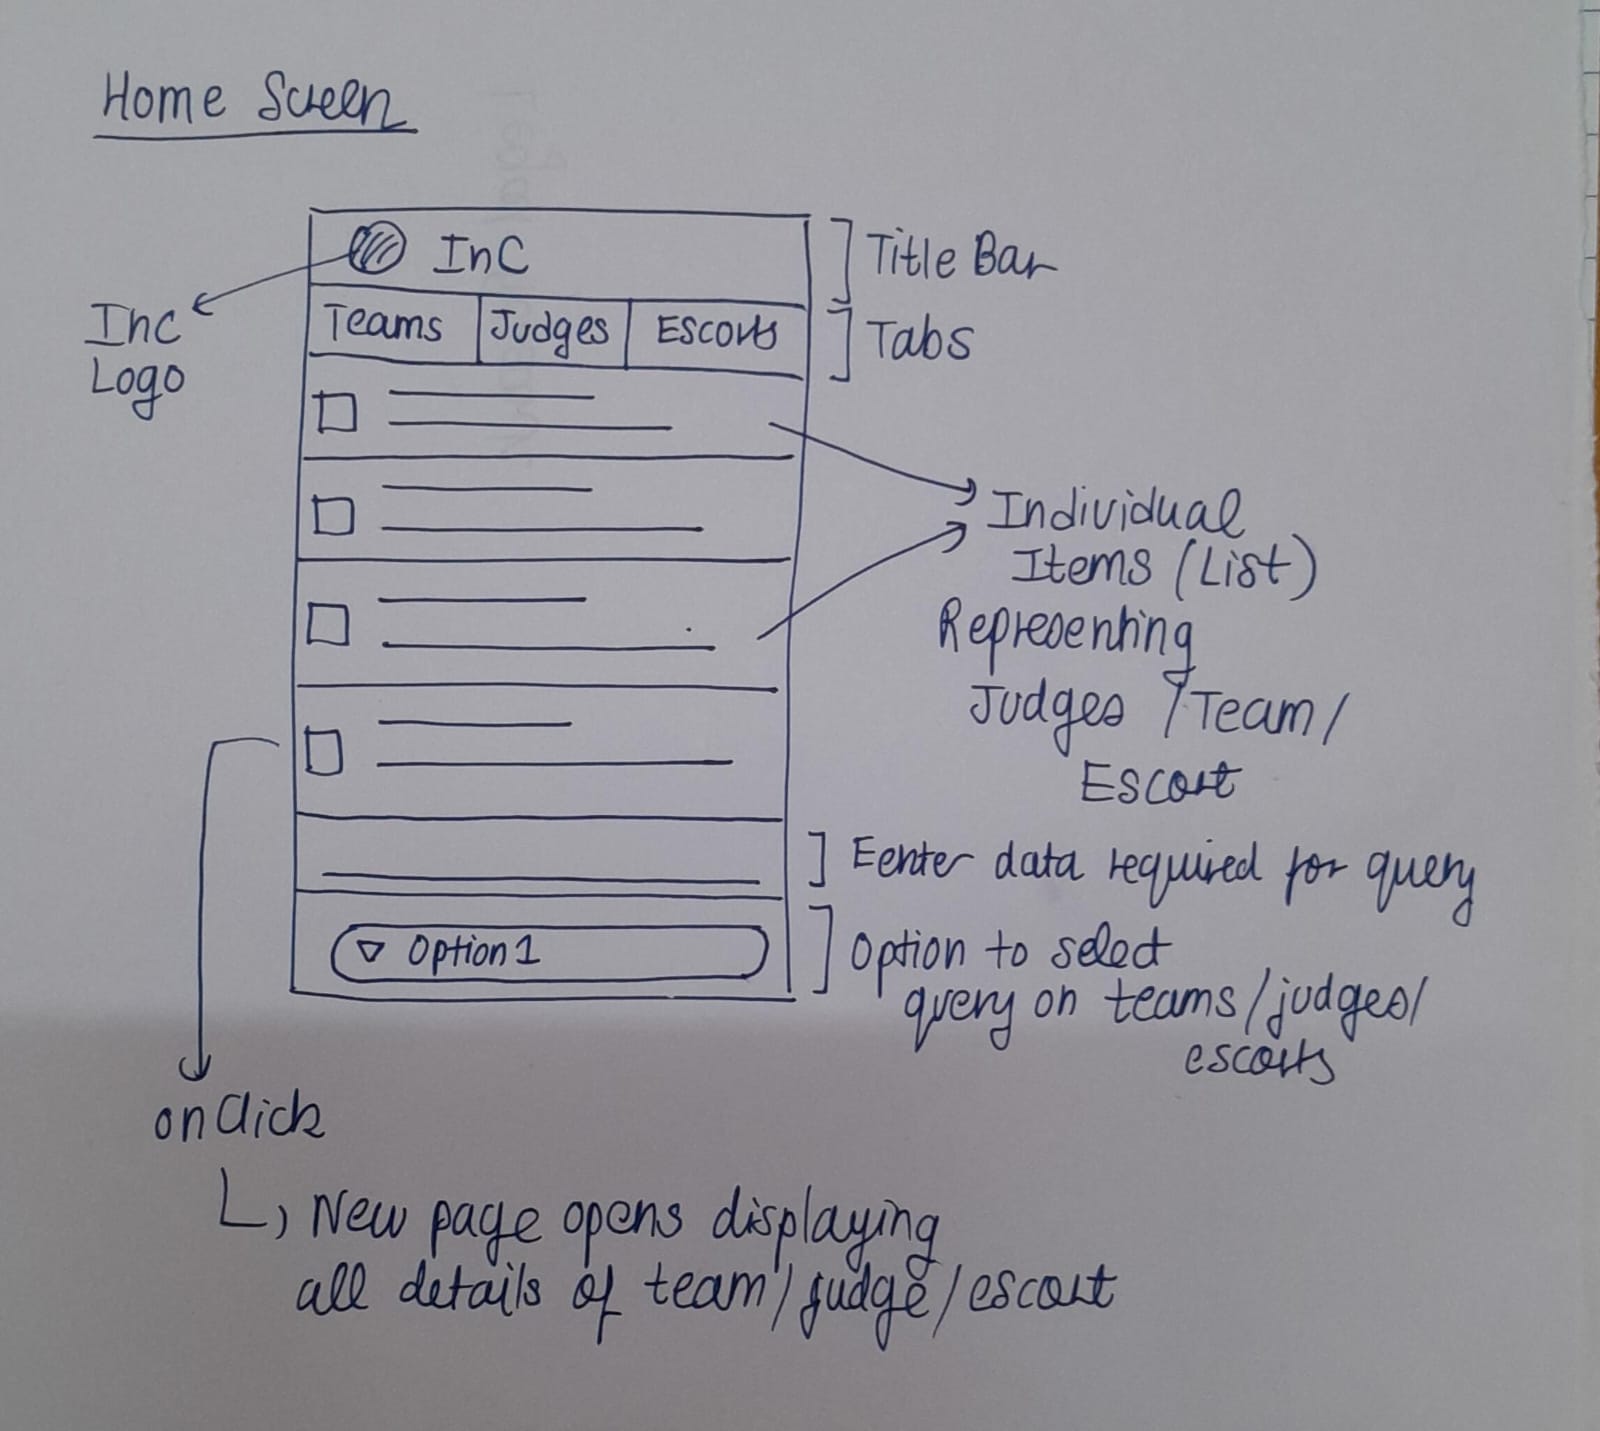 Home Screen
InC
Title Bar
Inc
Logo
Teams Judges Escorts
Tabs
Individual
Items (List)
Representing
Judges / Team /
Escort
Eenter data required for query
Option 1
Option to select
query on teams/judges/
escorts
onClick
New page opens displaying
all details of team/judge/escort